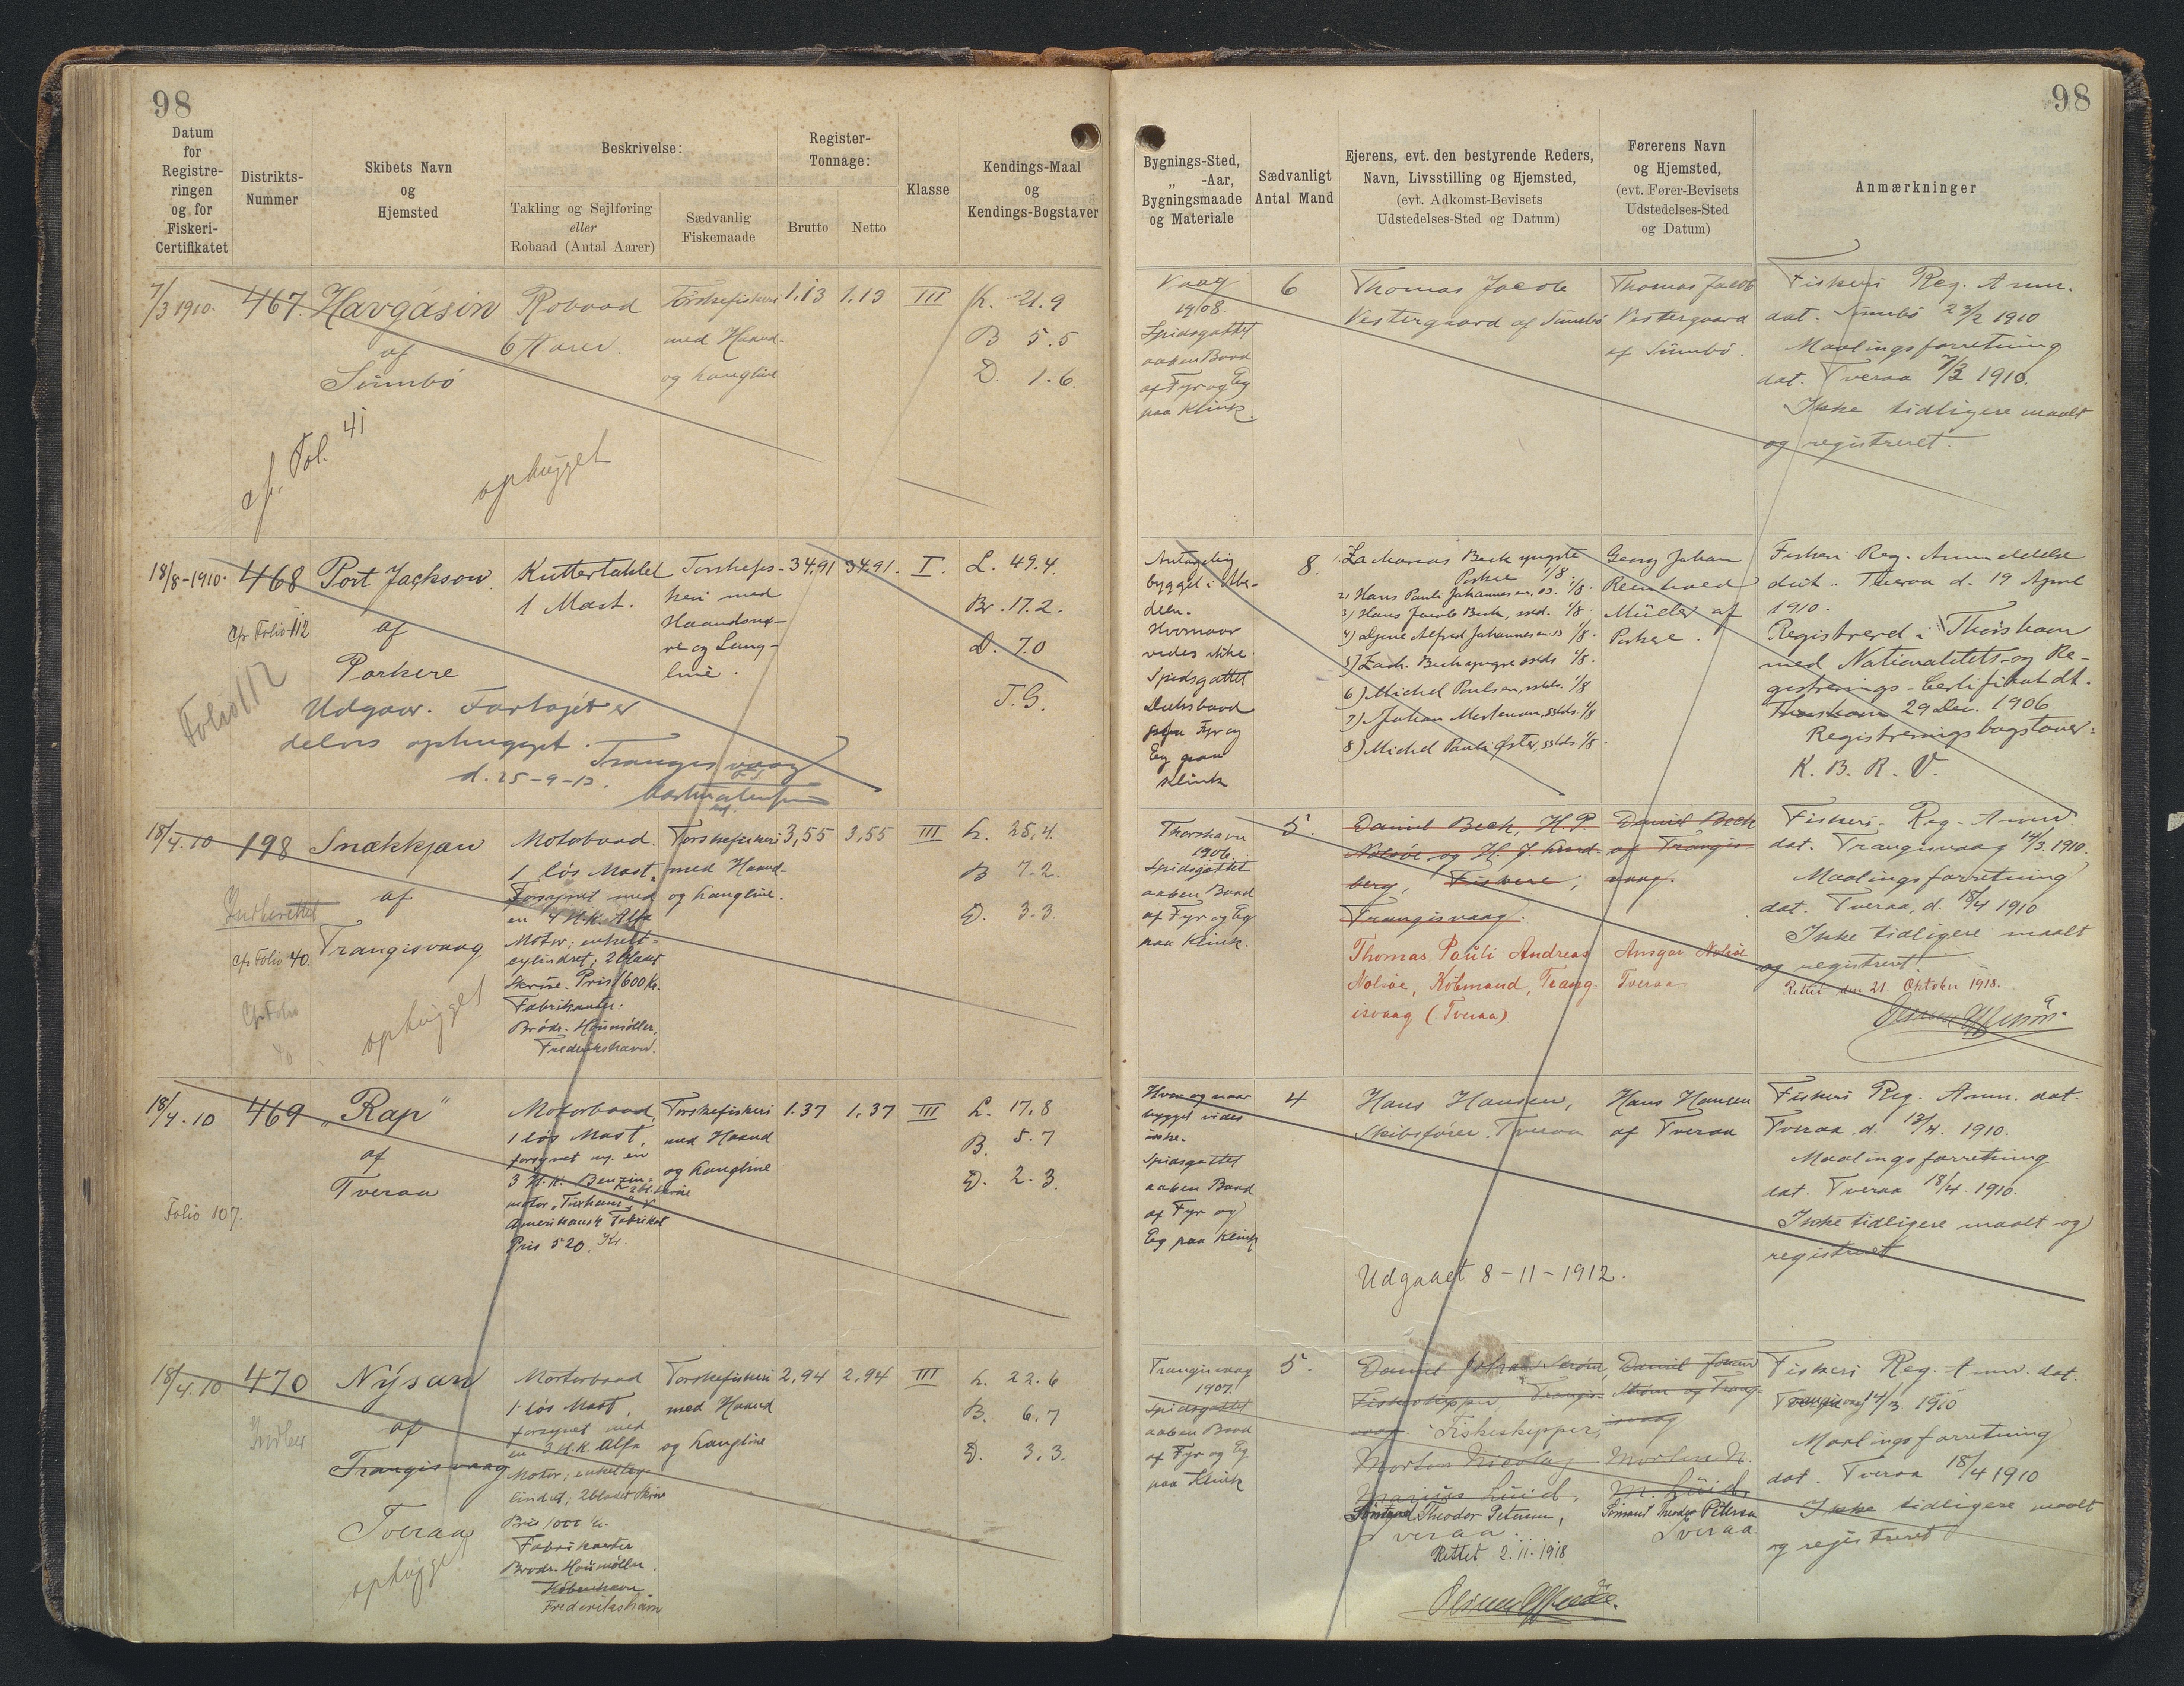 98
Datum
for
Registre-
ringen
og for
Fiskeri-
Certifikatet
Distrikts-
Nummer
Skibets Navn
og
Hjemsted
Beskrivelse:
Takling og Sejlføring
eller
Robaad (Antal Aarer)
Sædvanlig
Fiskemaade
Register-
Tonnage:
Brutto
Netto
Klasse
Kendings-Maal
og
Kendings-Bogstaver
7/3 1910.
467.
Havgásin
af
Sümbö
cf. Fol. 41
ophugget
Robaad
6 Aarer.
Torskefiskeri
med Haand-
og Langline
1.13
1.13
III
L. 21.9
B 5.5
D. 1.6.
18/8-1910.
468
Cfr Folio 112
Folio 112
Port Jackson.
af
Porkere
Udgaar. Fartøjet er
delvis ophugget.
Trangisvaag
d. 25-9-13.
Kuttertaklet
1 Mast.
Torskefis-
keri med
Haandsnø-
re og Lang-
line.
34.91
34.91.
I.
L. 49.4.
Br. 17.2.
D. 7.0
T.G.
18/4.10
198
cfr Folio 40.
Cfr Folio
40
Snækkjan
af
Trangisvaag
ophugget
Motorbaad.
1 løs Mast.
Forsynet med
en 4 H.K. Alfa
Motor; enkelt-
cylindret; 2 bladet
Skrue. Pris 1600 Kr.
Fabrikanter:
Brødr. Houmøller,
Frederikshavn.
Torskefiskeri
med Haand-
og Langline.
3,55
3,55
III
L. 25.4.
B 7.2.
D. 3.3.
18/4.10
469
Folio 107.
"Rap"
af
Tveraa
Motorbaad
1 løs Mast,
forsynet m. en
3 H.K. Benzin-
2 bl. Skrue
Amerikansk Fabrikat
Pris 520. Kr.
Torskefiskeri
med Haand
og Langline
1.37
1.37
III
L. 17,8
B. 5.7
D. 2.3.
18/4.10
470
Nýsan
af
Trangisvaag
Tveraa
ophugget
Motorbaad
1 løs Mast,
forsynet med
en 3 H.K. Alfa
Motor; enkeltcy-
lindret; 2 bladet Skrue
Pris 1000 Kr.
Fabrikanter
Brødr. Houmøller.
København
Frederikshavn
Torskefiskeri
med Haand
og Langline
2,94
2,94
III
L. 22.6
B. 6.7
D. 3.3.
98
Bygnings-Sted,
" -Aar,
Bygningsmaade
og Materiale
Sædvanligt
Antal Mand
Ejerens, evt. den bestyrende Reders,
Navn, Livsstilling og Hjemsted,
(evt. Adkomst-Bevisets
Udstedelses-Sted og Datum)
Førerens Navn
og Hjemsted,
(evt. Fører-Bevisets
Udstedelses-Sted
og Datum)
Anmærkninger
Vaag
1908.
Spidsgattet
aaben Baad
af Fyr og Eg
paa Klink.
6
Thomas Jacob
Vestergaard af Sümbö
Thomas Jacob
Vestergaard
af Sümbö.
Fiskeri Reg. Anm.
dat. Sümbö 23/2 1910
Maalingsforretning
dat. Tveraa 7/3 1910.
Ikke tidligere maalt
og registreret.
Antagelig
bygget i Aber-
deen.
Hvornaar
vides ikke.
Spidsgattet
Dæksbaad
Fyr og
Eg paa
Klink
8.
Zacharias Beck yngste
Porkere 1/8.
2) Hans Pauli Johannesen, 1/8.
3) Hans Jacob Beck, 1/8.
4) Alfred Johannesen 1/8.
5) Zach. Beck yngre 1/8.
6) Michel Poulsen, 1/8
7) Johan Mortensen, 1/8
8) Michel Pauli Øster, 1/8.
Georg Johan
Reinhold
Müller af
Porkere.
Fiskeri Reg. Anmeldelse
dat. Tveraa d. 19 April
1910.
Registrered i Thorshavn
med Nationalitets- og Re-
gistrerings-Certifikat dt.
Thorshavn 29 Dec. 1906
Registreringsbogstaver:
K. B. R. V.
Thorshavn
1906.
Spidsgattet
aaben Baad
af Fyr og Eg
paa Klink.
5.
Daniel Beck, H. P.
Nolsøe og H. J. Lind-
berg, Fiskere,
Trangisvaag.
Thomas Pauli Andreas
Nolsøe, Købmand, Trang-
isvaag (Tveraa)
Daniel Beck
af Trangis-
vaag.
Ansgar Nolsøe
Tveraa
Fiskeri- Reg. Anm.
dat. Trangisvaag 14/3. 1910.
Maalingsforretning
dat. Tveraa, d. 18/4 1910
Ikke tidligere maalt
og registreret.
Rettet den 21 Oktober 1918.
Hvor og naar
bygget vides
ikke.
Spidsgattet
aaben Baad
af Fyr og
Eg paa Klink
4
Hans Hansen,
Skibsfører. Tveraa
Udgaaet 8-11-1912.
Hans Hansen
af Tveraa
Fiskeri Reg. Anm. dat.
Tveraa d. 13/4. 1910.
Maalingsforretning
dat. Tveraa 18/4. 1910.
Ikke tidligere maalt og
registreret
Trangisvaag
1907.
Spidsgattet
aaben Baad
af Fyr og Eg
paa Klink
5.
Daniel Johan
Fiskeskipper, Trangis-
vaag. Fiskeskipper,
Morten Nicolaj
Theodor Petersen,
veraa.
Rettet 2.11.1918
Daniel Johan
af Trang-
isvaag
Morten N.
Theodor Petersen
Tveraa.
Fiskeri Reg. Anm. dat.
Trangisvaag 14/3 1910
Maalingsforretning
dat. Tveraa 18/4 1910
Ikke tidligere maalt
og registreret